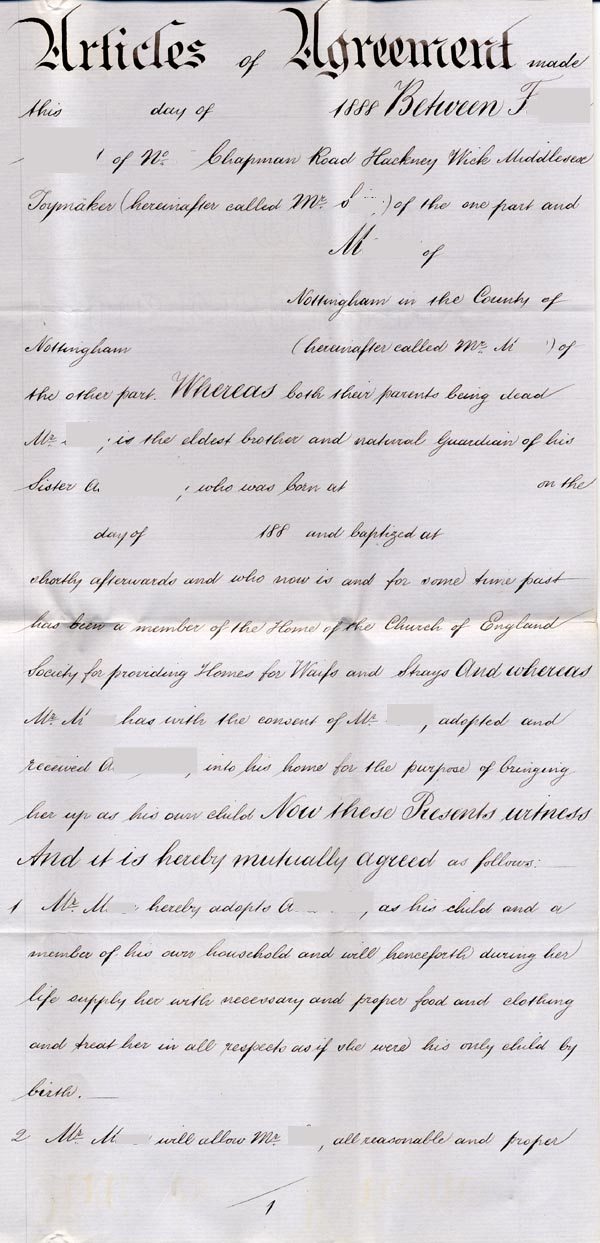 Articles of Agreement made
this day of 1888 Between F
of No Chapman Road Hackney Wick Middlesex
Toymaker (hereinafter called Mr. S ) of the one part and
M of
Nottingham in the County of
Nottingham (hereinafter called Mr. M ) of
the other part. Whereas both their parents being dead
Mr. ; is the eldest brother and natural Guardian of his
Sister A ; who was born at on the
day of 188 and baptized at
shortly afterwards and who now is and for some time past
has been a member of the Home of the Church of England
Society for providing Homes for Waifs and Strays And whereas
Mr. M has with the consent of Mr. , adopted and
received A , into his home for the purpose of bringing
her up as his own child Now these Presents witness
And it is hereby mutually agreed as follows:
1 Mr. M hereby adopts A , as his child and a
member of his own household and will henceforth during her
life supply her with necessary and proper food and clothing
and treat her in all respects as if she were his only child by
birth.
2 Mr. M will allow Mr. , all reasonable and proper
1